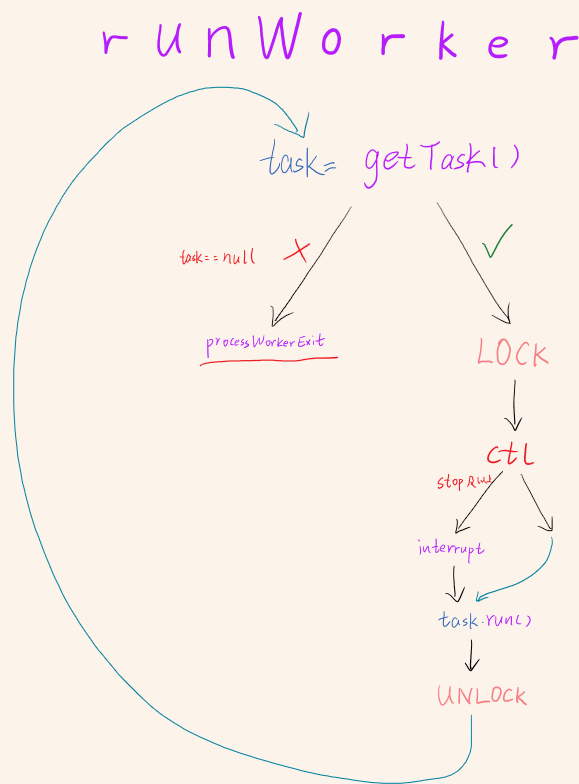 runWorker
task= getTask()
task==null
processWorkerExit
LOCK
ctl
stop
interrupt
task.run()
UNLOCK